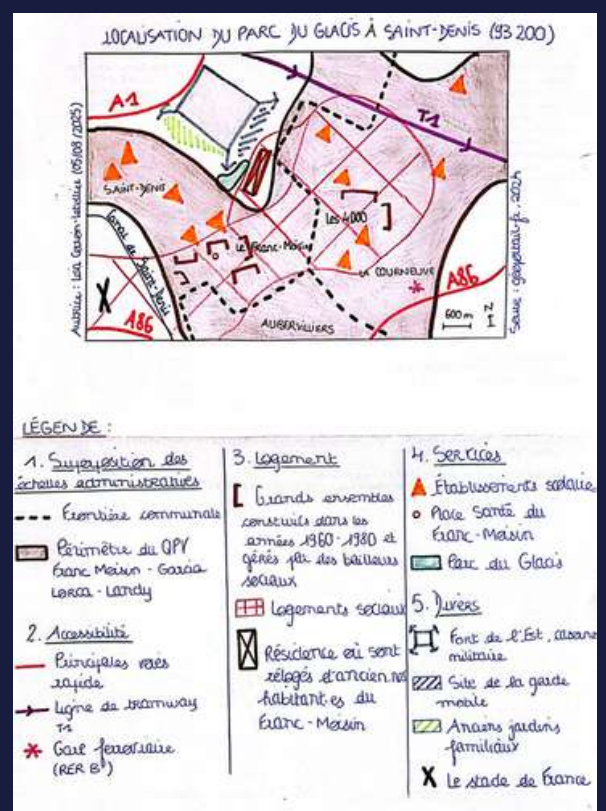 LOCALISATION DU PARC DU GLACIS À SAINT-DENIS (93 200)
A1
T1
SAINT-DENIS
Canal de Saint-Denis
Le Franc-Moisin
Les 4000
LA COURNEUVE
AUBERVILLIERS
A86
A86
600 m
N
X
Source : géoportail.fr, 2024
LÉGENDE :
1. Superposition des
échelles administratives
Frontière communale
Périmètre du QPV
Franc Moisin - Garcia
Lorca - Landy
2. Accessibilité
Principales voies
rapide
Ligne de tramway
T1
Gare ferroviaire
(RER B)
3. Logement
Grands ensembles
construits dans les
années 1960-1980 et
gérés par des bailleurs
sociaux
Logements sociaux
Résidence où sont
relogés d'ancien.nes
habitant.es du
Franc-Moisin
4. Services
Établissements scolaire
Place Santé du
Franc-Moisin
Parc du Glacis
5. Divers
Fort de l'Est, caserne
militaire
Site de la garde
mobile
Anciens jardins
familiaux
X Le stade de France